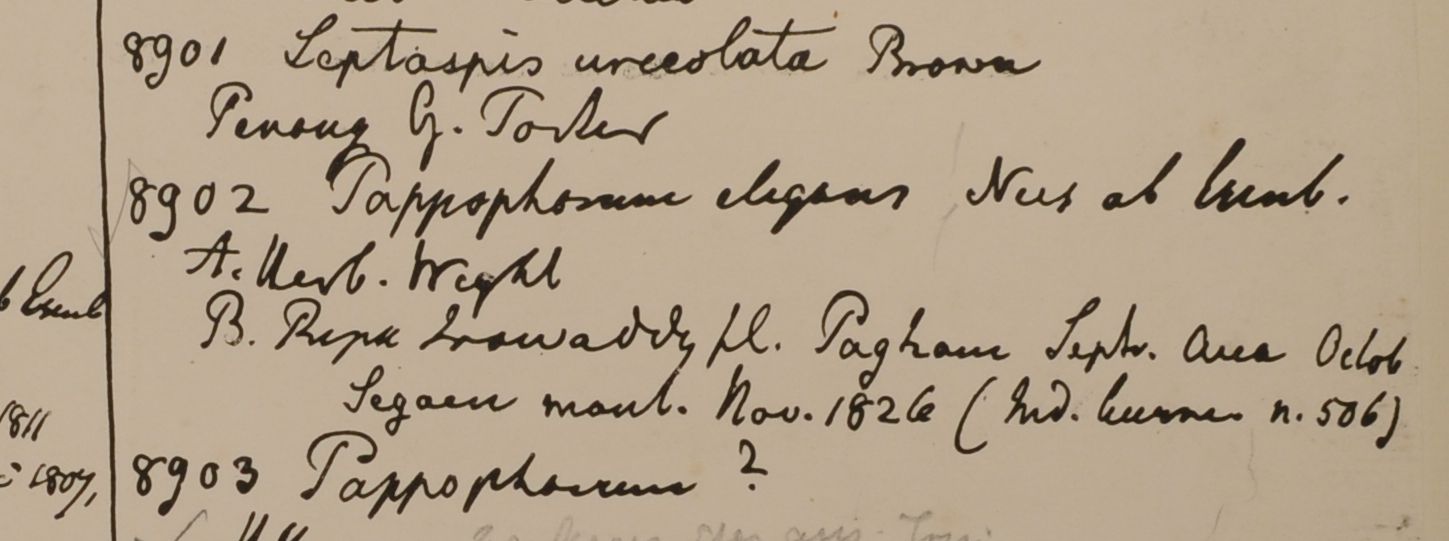 8901 Leptaspis urceolata Brown
Penang G. Porter
8902 Pappophorum elegans Nees ab Esenb.
A. Herb. Wight
b Esenb
B. Ripa Irawaddy fl. Pagham Septr. Ava Octob
Segaen mont. Nov. 1826 (Ind. burman. n. 506)
1811
1807,
8903 Pappophorum ?